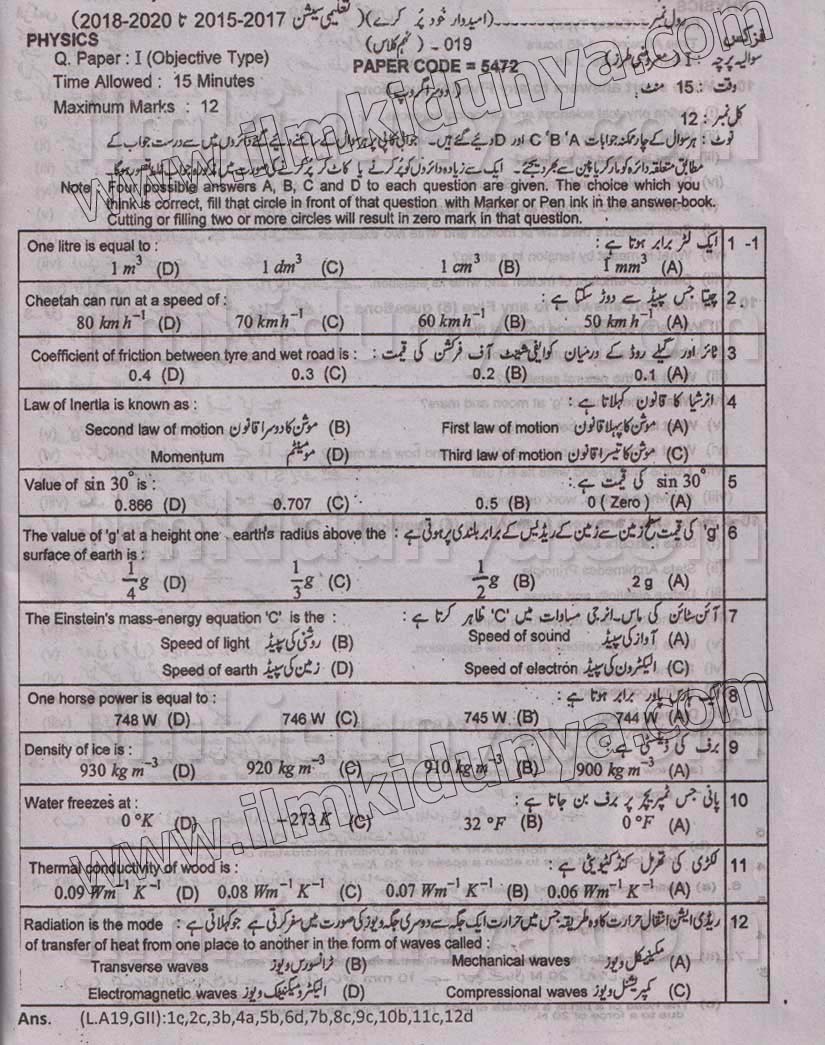 رول نمبر (امیدوار خود پُر کرے) (تعلیمی سیشن 2015-2017 تا 2018-2020)
PHYSICS 019 - (نہم کلاس) فزکس
Q. Paper : I (Objective Type) PAPER CODE = 5472 سوالیہ پرچہ : I (معروضی طرز)
Time Allowed : 15 Minutes (دوسرا گروپ) وقت : 15 منٹ
Maximum Marks : 12 کل نمبر : 12
نوٹ : ہر سوال کے چار ممکنہ جوابات C ' B ' A اور D دیئے گئے ہیں۔ جوابی کاپی پر ہر سوال کے سامنے دیئے گئے دائروں میں سے درست جواب کے
مطابق متعلقہ دائرہ کو مارکر یا پین سے بھر دیجئے۔ ایک سے زیادہ دائروں کو پُر کرنے یا کاٹ کر پُر کرنے کی صورت میں مذکورہ جواب غلط تصور ہوگا۔
Note : Four possible answers A, B, C and D to each question are given. The choice which you
think is correct, fill that circle in front of that question with Marker or Pen ink in the answer-book.
Cutting or filling two or more circles will result in zero mark in that question.
One litre is equal to : ایک لٹر برابر ہوتا ہے : 1 -1
1 m³ (D) 1 dm³ (C) 1 cm³ (B) 1 mm³ (A)
Cheetah can run at a speed of : چیتا جس سپیڈ سے دوڑ سکتا ہے : 2
80 kmh⁻¹ (D) 70 kmh⁻¹ (C) 60 kmh⁻¹ (B) 50 kmh⁻¹ (A)
Coefficient of friction between tyre and wet road is : ٹائر اور گیلے روڈ کے درمیان کوایفی شینٹ آف فرکشن کی قیمت : 3
0.4 (D) 0.3 (C) 0.2 (B) 0.1 (A)
Law of Inertia is known as : انرشیا کا قانون کہلاتا ہے : 4
Second law of motion موشن کا دوسرا قانون (B) First law of motion موشن کا پہلا قانون (A)
Momentum مومینٹم (D) Third law of motion موشن کا تیسرا قانون (C)
Value of sin 30° is : sin 30° کی قیمت ہے : 5
0.866 (D) 0.707 (C) 0.5 (B) 0 ( Zero ) (A)
The value of 'g' at a height one earth's radius above the 'g' کی قیمت سطح زمین سے زمین کے ریڈیس کے برابر بلندی پر ہوتی ہے : 6
surface of earth is :
1/4 g (D) 1/3 g (C) 1/2 g (B) 2 g (A)
The Einstein's mass-energy equation 'C' is the : آئن سٹائن کی ماس۔انرجی مساوات میں 'C' ظاہر کرتا ہے : 7
Speed of light روشنی کی سپیڈ (B) Speed of sound آواز کی سپیڈ (A)
Speed of earth زمین کی سپیڈ (D) Speed of electron الیکٹرون کی سپیڈ (C)
One horse power is equal to : ایک ہارس پاور برابر ہوتا ہے : 8
748 W (D) 746 W (C) 745 W (B) 744 W (A)
Density of ice is : برف کی ڈینسٹی ہے : 9
930 kg m⁻³ (D) 920 kg m⁻³ (C) 910 kg m⁻³ (B) 900 kg m⁻³ (A)
Water freezes at : پانی جس ٹمپریچر پر برف بن جاتا ہے : 10
0 °K (D) -273 K (C) 32 °F (B) 0 °F (A)
Thermal conductivity of wood is : لکڑی کی تھرمل کنڈکٹیویٹی ہے : 11
0.09 Wm⁻¹ K⁻¹ (D) 0.08 Wm⁻¹ K⁻¹ (C) 0.07 Wm⁻¹ K⁻¹ (B) 0.06 Wm⁻¹ K⁻¹ (A)
Radiation is the mode ریڈی ایشن انتقال حرارت کا وہ طریقہ جس میں حرارت ایک جگہ سے دوسری جگہ ویوز کی صورت میں سفر کرتی ہے جو کہلاتی ہے : 12
of transfer of heat from one place to another in the form of waves called :
Transverse waves ٹرانسورس ویوز (B) Mechanical waves مکینیکل ویوز (A)
Electromagnetic waves الیکٹرومیگنیٹک ویوز (D) Compressional waves کمپریشنل ویوز (C)
Ans. (L.A19,GII):1c,2c,3b,4a,5b,6d,7b,8c,9c,10b,11c,12d
www.ilmkidunya.com
www.ilmkidunya.com